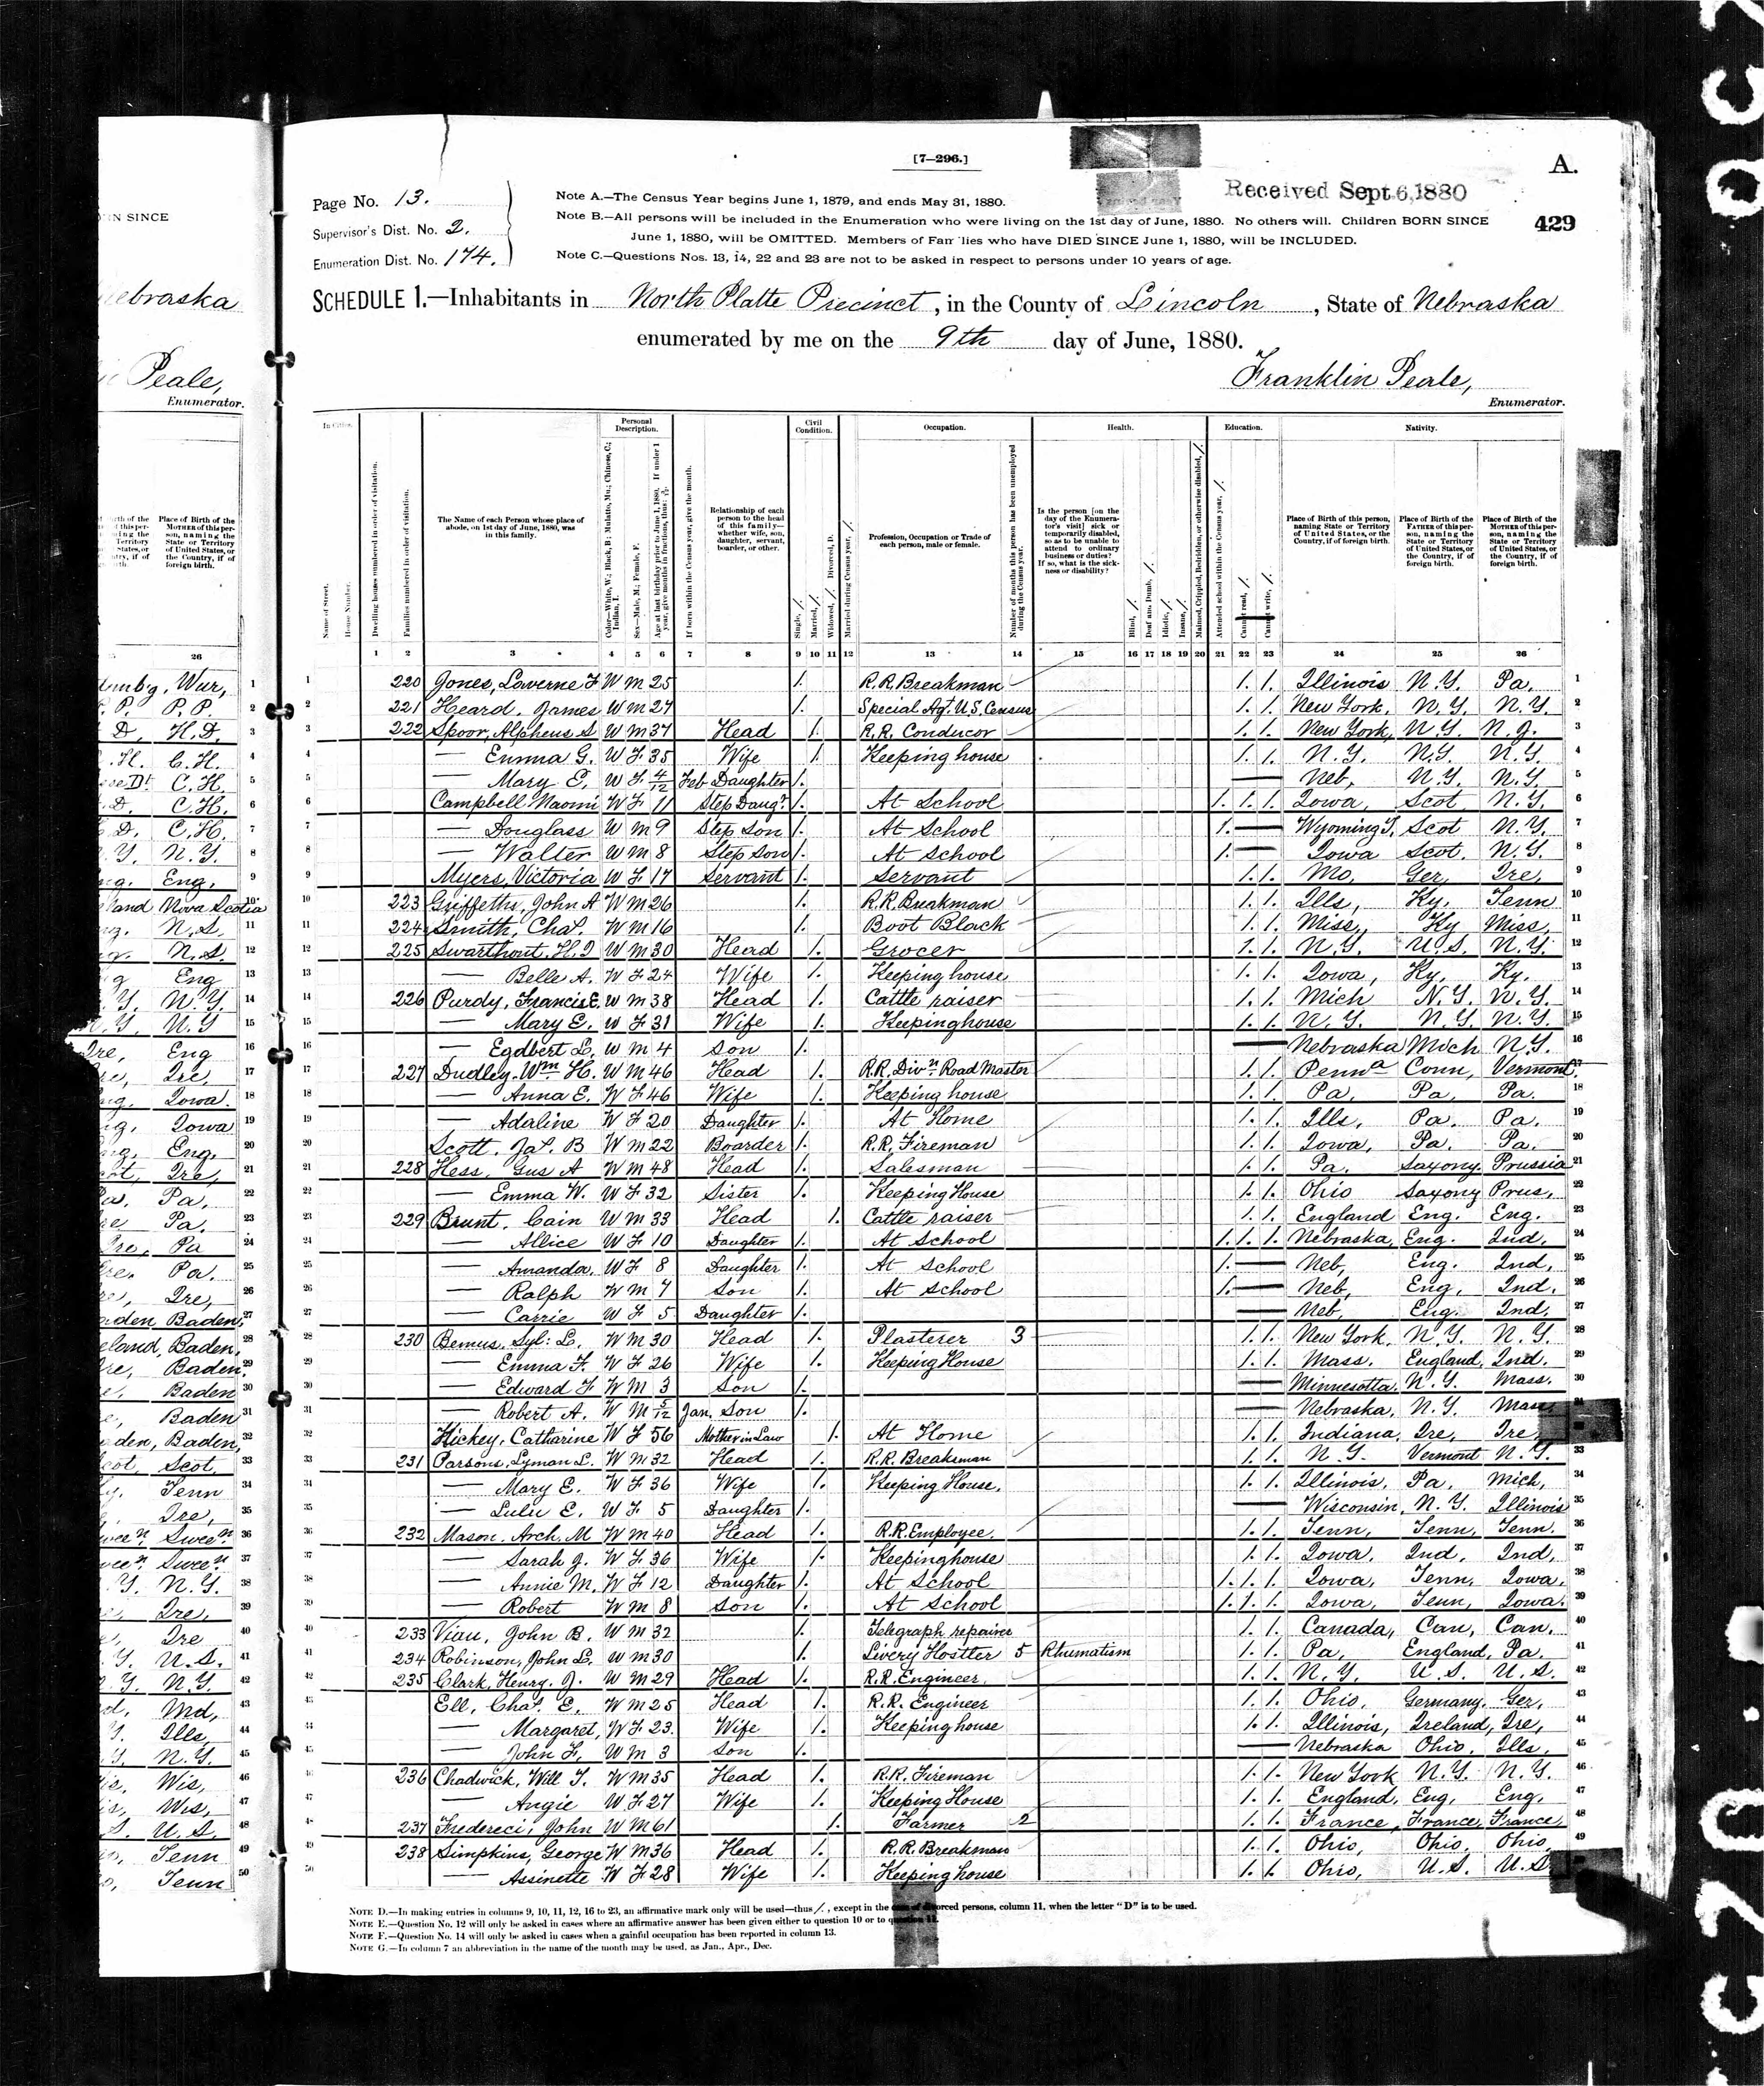 [7-296.]
A.
Page No. 13.
Supervisor's Dist. No. 2.
Enumeration Dist. No. 174.
Note A.—The Census Year begins June 1, 1879, and ends May 31, 1880.
Note B.—All persons will be included in the Enumeration who were living on the 1st day of June, 1880. No others will. Children BORN SINCE
June 1, 1880, will be OMITTED. Members of Families who have DIED SINCE June 1, 1880, will be INCLUDED.
Note C.—Questions Nos. 13, 14, 22 and 23 are not to be asked in respect to persons under 10 years of age.
Received Sept. 6, 1880
429
SCHEDULE 1.—Inhabitants in North Platte Precinct, in the County of Lincoln, State of Nebraska
enumerated by me on the 9th day of June, 1880.
Franklin Peale,
Enumerator.
Personal Description. Civil Condition. Occupation. Health. Education. Nativity.
The Name of each Person whose place of abode, on 1st day of June, 1880, was in this family.
Relationship of each person to the head of this family—whether wife, son, daughter, servant, boarder, or other.
Profession, Occupation or Trade of each person, male or female.
Is the person [on the day of the Enumerator's visit] sick or temporarily disabled, so as to be unable to attend to ordinary business or duties? If so, what is the sickness or disability?
Place of Birth of this person, naming State or Territory of United States, or the Country, if of foreign birth.
Place of Birth of the FATHER of this person, naming the State or Territory of United States, or the Country, if of foreign birth.
Place of Birth of the MOTHER of this person, naming the State or Territory of United States, or the Country, if of foreign birth.
1 2 3 4 5 6 7 8 9 10 11 12 13 14 15 16 17 18 19 20 21 22 23 24 25 26
1 220 Jones, Laverne F W M 25 /. R.R. Breakman /. /. Illinois N.Y. Pa. 1
2 221 Heard, James W M 27 /. Special Agt. U.S. Census /. /. New York, N.Y. N.Y. 2
3 222 Spoor, Alpheus S W M 37 Head /. R.R. Conducor /. /. New York, N.Y. N.J. 3
4 — Emma G. W F 35 Wife /. Keeping house /. /. N.Y. N.Y. N.Y. 4
5 — Mary E. W F 4/12 Feb Daughter /. — Neb, N.Y. N.Y. 5
6 Campbell Naomi W F 11 Step Daugr /. At School /. /. /. Iowa, Scot N.Y. 6
7 — Douglass W M 9 Step Son /. At School /. — Wyoming T. Scot N.Y. 7
8 — Walter W M 8 Step Son /. At School /. — Iowa Scot. N.Y. 8
9 Myers, Victoria W F 17 Servant /. Servant /. /. Mo, Ger, Ire, 9
10 223 Griffeths, John A W M 26 /. R.R. Breakman /. /. Ills, Ky, Tenn 10
11 224 Smith, Chas. W M 16 /. Boot Black /. /. Miss, Ky Miss, 11
12 225 Swarthout, H. D W M 30 Head /. Grocer /. /. N.Y. U.S. N.Y. 12
13 — Belle A. W F 24 Wife /. Keeping house /. /. Iowa, Ky, Ky. 13
14 226 Purdy, Francis E. W M 38 Head /. Cattle raiser /. /. Mich N.Y. N.Y. 14
15 — Mary E. W F 31 Wife /. Keeping house /. /. N.Y. N.Y. N.Y. 15
16 — Egdbert L. W M 4 Son /. — Nebraska Mich N.Y. 16
17 227 Dudley, Wm H. W M 46 Head /. R.R. Divn. Road Master /. /. Penna Conn, Vermont. 17
18 — Anna E. W F 46 Wife /. Keeping house /. /. Pa, Pa, Pa. 18
19 — Adaline W F 20 Daughter /. At Home /. /. Ills, Pa. Pa. 19
20 Scott, Jas. B W M 22 Boarder /. R.R. Fireman /. /. Iowa, Pa. Pa. 20
21 228 Hess, Gus A W M 48 Head /. Salesman /. /. Pa. Saxony Prussia 21
22 — Emma W. W F 32 Sister /. Keeping House /. /. Ohio Saxony Prus, 22
23 229 Brunt, Cain W M 33 Head /. Cattle raiser /. /. England Eng. Eng. 23
24 — Allice W F 10 Daughter /. At School /. /. /. Nebraska, Eng. Ind, 24
25 — Amanda, W F 8 Daughter /. At School /. — Neb, Eng. Ind, 25
26 — Ralph W M 7 Son /. At School /. — Neb, Eng, Ind. 26
27 — Carrie W F 5 Daughter /. — Neb, Eng. Ind, 27
28 230 Bemus, Syl: L. W M 30 Head /. Plasterer 3 /. /. New York, N.Y. N.Y. 28
29 — Emma F. W F 26 Wife /. Keeping House /. /. Mass. England, Ind. 29
30 — Edward F W M 3 Son /. — Minnesotta, N.Y. Mass. 30
31 — Robert A. W M 5/12 Jan. Son /. — Nebraska, N.Y. Mass
32 Hickey, Catharine W F 56 Mother in Law /. At Home /. /. Indiana, Ire, Ire
33 231 Parsons, Lyman L. W M 32 Head /. R.R. Breakman /. /. N.Y. Vermont N.Y. 33
34 — Mary E. W F 36 Wife /. Keeping House, /. /. Illinois, Pa, Mich, 34
35 — Lulu E. W F 5 Daughter /. — Wisconsin, N.Y. Illinois 35
36 232 Mason, Arch. M W M 40 Head /. R.R. Employee. /. /. Tenn, Tenn, Tenn. 36
37 — Sarah J. W F 36 Wife /. Keeping house /. /. Iowa, Ind, Ind, 37
38 — Annie M. W F 12 Daughter /. At School /. /. /. Iowa, Tenn, Iowa, 38
39 — Robert W M 8 Son /. At School /. /. /. Iowa, Tenn, Iowa. 39
40 233 Viau, John B. W M 32 /. Telegraph repairer /. /. Canada, Can, Can. 40
41 234 Robinson, John L. W M 30 /. Livery Hostler 5 Rhumatism /. /. Pa, England, Pa. 41
42 235 Clark, Henry. J. W M 29 Head /. R.R. Engineer. /. /. N.Y. U.S. U.S. 42
43 Ell, Chas. E. W M 25 Head /. R.R. Engineer /. /. Ohio, Germany, Ger, 43
44 — Margaret, W F 23. Wife /. Keeping house /. /. Illinois, Ireland, Ire, 44
45 — John F. W M 3 Son /. — Nebraska Ohio, Ills. 45
46 236 Chadwick, Will T. W M 35 Head /. R.R. Fireman /. /. New York N.Y. N.Y. 46
47 — Angie W F 27 Wife /. Keeping House /. /. England, Eng, Eng, 47
48 237 Fredereci, John W M 61 /. Farmer 2 /. /. France, France, France, 48
49 238 Simpkins, George W M 36 Head /. R.R. Breakman /. /. Ohio, Ohio, Ohio, 49
50 — Assinette W F 28 Wife /. Keeping house /. /. Ohio, U.S. U.S.
NOTE D.—In making entries in columns 9, 10, 11, 12, 16 to 23, an affirmative mark only will be used—thus /., except in the case of divorced persons, column 11, when the letter "D" is to be used.
NOTE E.—Question No. 12 will only be asked in cases where an affirmative answer has been given either to question 10 or to question 11.
NOTE F.—Question No. 14 will only be asked in cases when a gainful occupation has been reported in column 13.
NOTE G.—In column 7 an abbreviation in the name of the month may be used, as Jan., Apr., Dec.